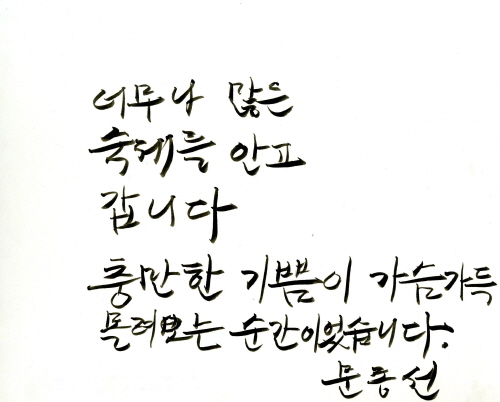 너무나 많은
숙제를 안고
갑니다
충만한 기쁨이 가슴가득
몰려보는 순간이었습니다.
문동선